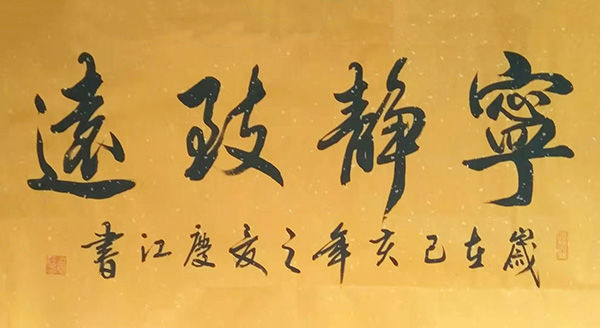 寧靜致遠
歲在己亥年之夏慶江書